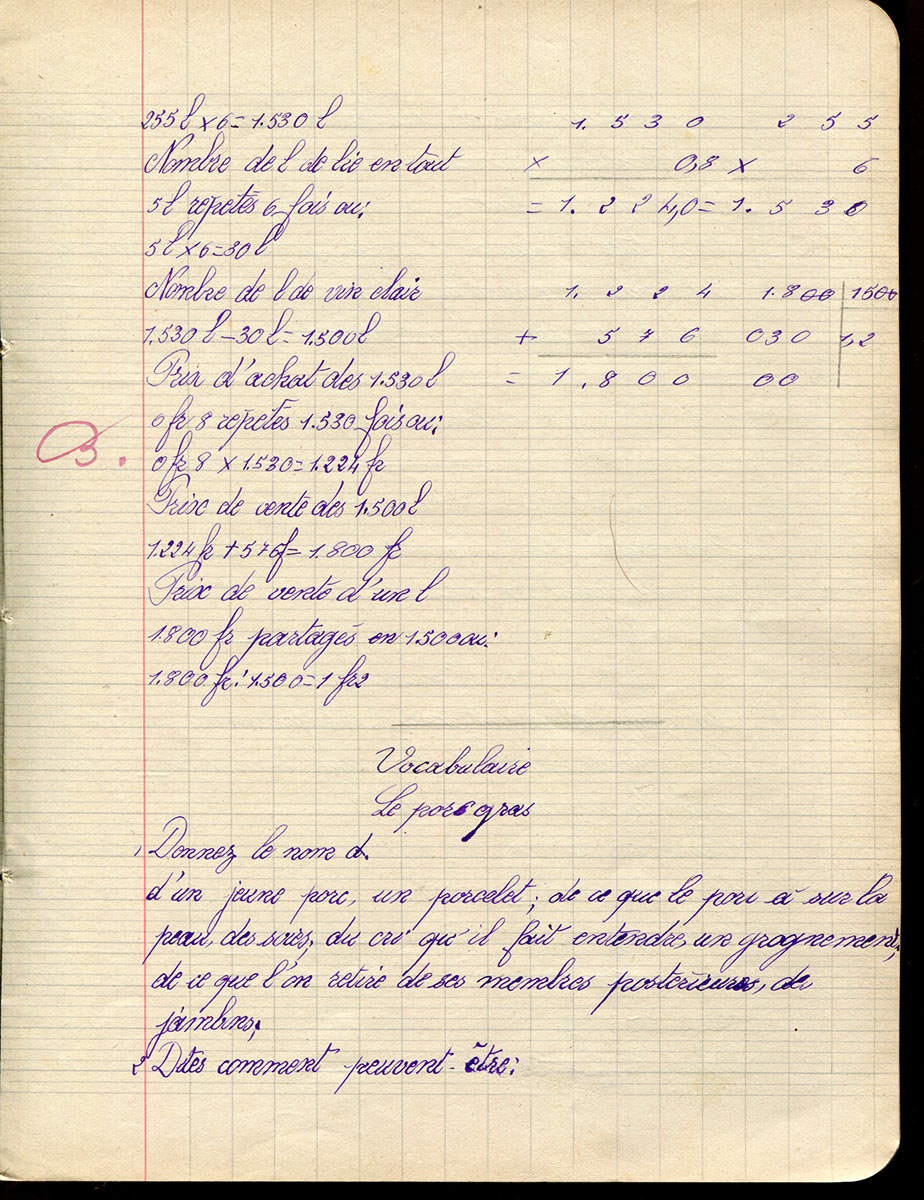 255 l × 6 = 1.530 l
Nombre de l de lie en tout
5 l repetés 6 fois ou:
5 l × 6 = 30 l
Nombre de l de vin clair
1.530 l – 30 l = 1.500 l
Prix d'achat des 1.530 l
0 fr 8 repetés 1.530 fois ou:
0 fr 8 × 1.530 = 1.224 fr
Prix de vente des 1.500 l
1.224 fr + 576 f = 1.800 fr
Prix de vente d'un l
1.800 fr partagés en 1.500 ou:
1.800 fr : 1.500 = 1 fr 2
1. 5 3 0 2 5 5
× 0,8 × 6
= 1. 2 2 4,0 = 1. 5 3 0
1. 2 2 4 1.800 1500
+ 5 7 6 030 1,2
= 1 . 8 0 0 00
3.
Vocabulaire
Le porc gras
1 Donnez le nom d.
d'un jeune porc, un porcelet; de ce que le porc a sur la
peau, des soies; du cri qu'il fait entendre, un grognement;
de ce que l'on retire de ses membres postérieures, de
jambns;
2 Dites comment peuvent-être: